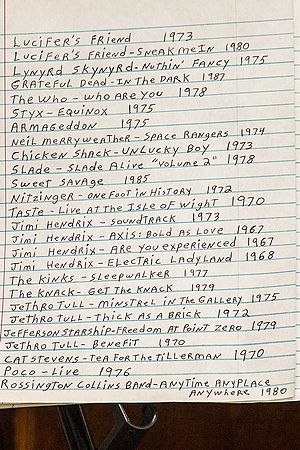 Lucifer's Friend 1973
Lucifer's Friend - Sneak me In 1980
Lynyrd Skynyrd - Nuthin' Fancy 1975
Grateful Dead - In The Dark 1987
The Who - Who Are You 1978
Styx - Equinox 1975
Armageddon 1975
Neil Merryweather - Space Rangers 1974
Chicken Shack - Unlucky Boy 1973
Slade - Slade Alive "Volume 2" 1978
Sweet Savage 1985
Nitzinger - One Foot in History 1972
Taste - Live at the Isle of Wight 1970
Jimi Hendrix - Soundtrack 1973
Jimi Hendrix - Axis: Bold as Love 1967
Jimi Hendrix - Are you experienced 1967
Jimi Hendrix - Electric Ladyland 1968
The Kinks - Sleepwalker 1977
The Knack - Get The Knack 1979
Jethro Tull - Minstrel in the Gallery 1975
Jethro Tull - Thick As a Brick 1972
Jefferson Starship - Freedom at Point Zero 1979
Jethro Tull - Benefit 1970
Cat Stevens - Tea for the Tillerman 1970
Poco - Live 1976
Rossington Collins Band - Anytime Anyplace
Anywhere 1980